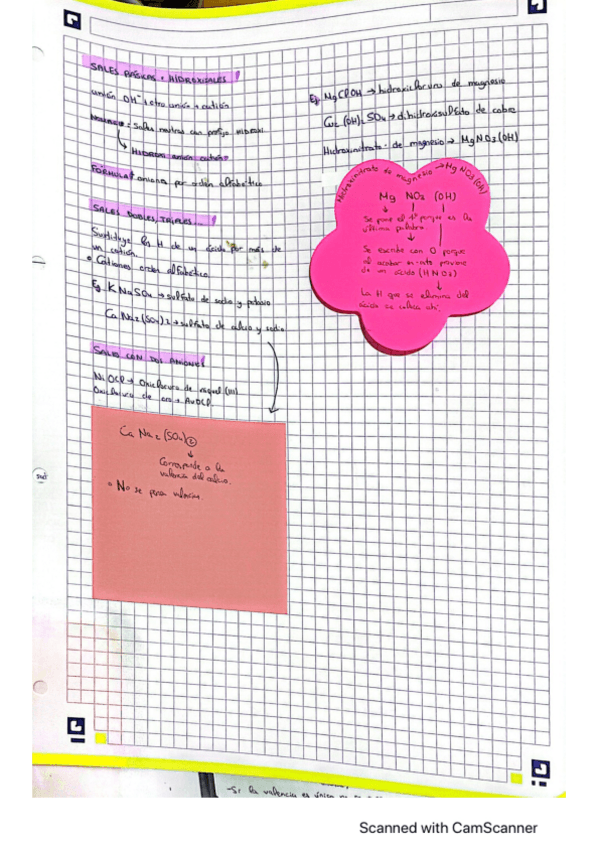 SALES BÁSICAS o HIDROXISALES
unión OH⁻ + otro anión + catión
: Sales neutras con prefijo hidroxi
HIDROXI anión catión
FÓRMULA: aniones por orden alfabético
SALES DOBLES, TRIPLES...
Sustituye los H de un ácido por más de
un catión.
Cationes orden alfabético
Eg KNaSO₄ → sulfato de sodio y potasio
CaNa₂(SO₄)₂ → sulfato de calcio y sodio
SALES CON DOS ANIONES
NiOCl → Oxicloruro de níquel (III)
Oxicloruro de oro → AuOCl
Ca Na₂ (SO₄)②
Corresponde a la
valencia del calcio.
No se ponen valencias.
Eg MgClOH → hidroxicloruro de magnesio
Cu₂(OH)₂SO₄ → dihidroxisulfato de cobre
Hidroxinitrato de magnesio → MgNO₃(OH)
Hidroxinitrato de magnesio → MgNO₃(OH)
Mg NO₃ (OH)
Se pone el 1º porque es la
última palabra
Se escribe con O porque
al acabar en -ato proviene
de un ácido (HNO₃)
La H que se elimina del
ácido se coloca ahí.
-Si la valencia es única no
Scanned with CamScanner